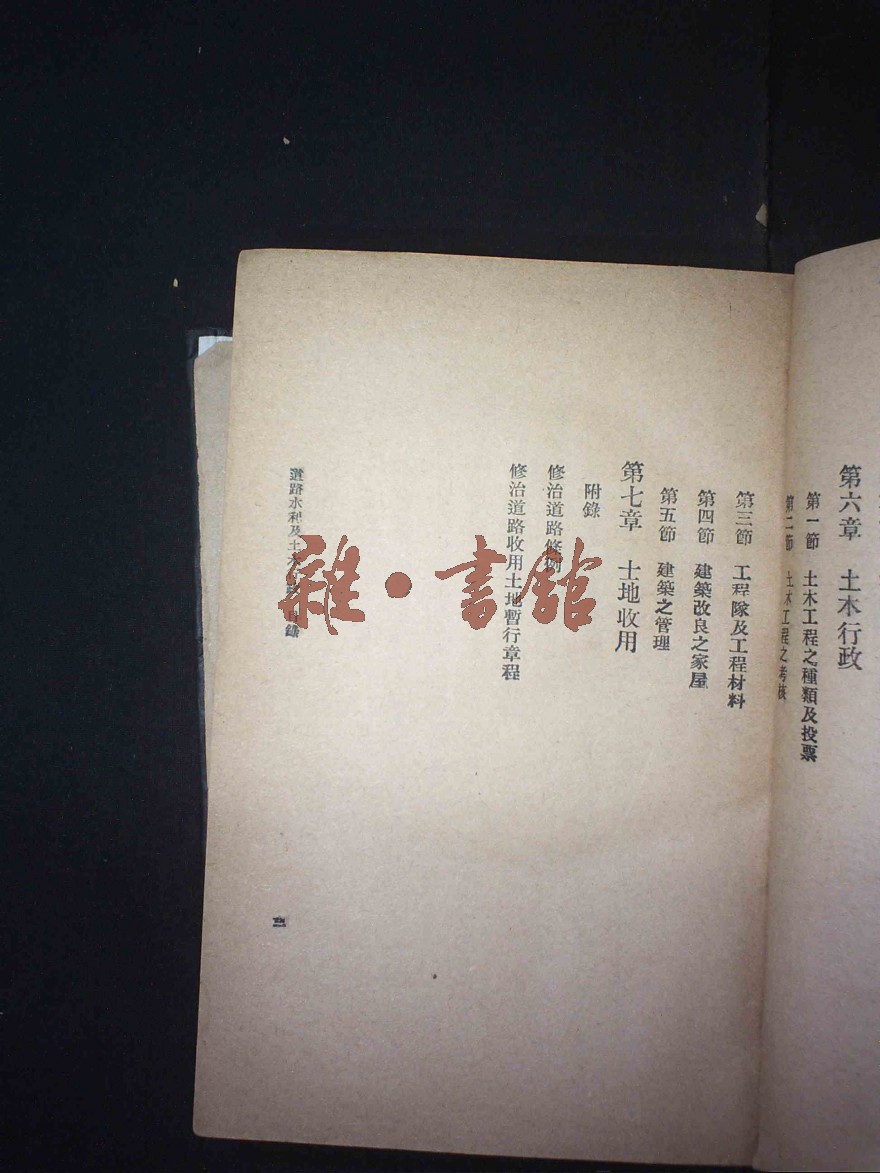 第六章　土木行政
第一節　土木工程之種類及投票
第二節　土木工程之考核
第三節　工程隊及工程材料
第四節　建築改良之家屋
第五節　建築之管理
第七章　土地收用
附錄
修治道路條例
修治道路收用土地暫行章程
道路水利及土木 目錄
三
雜·書館